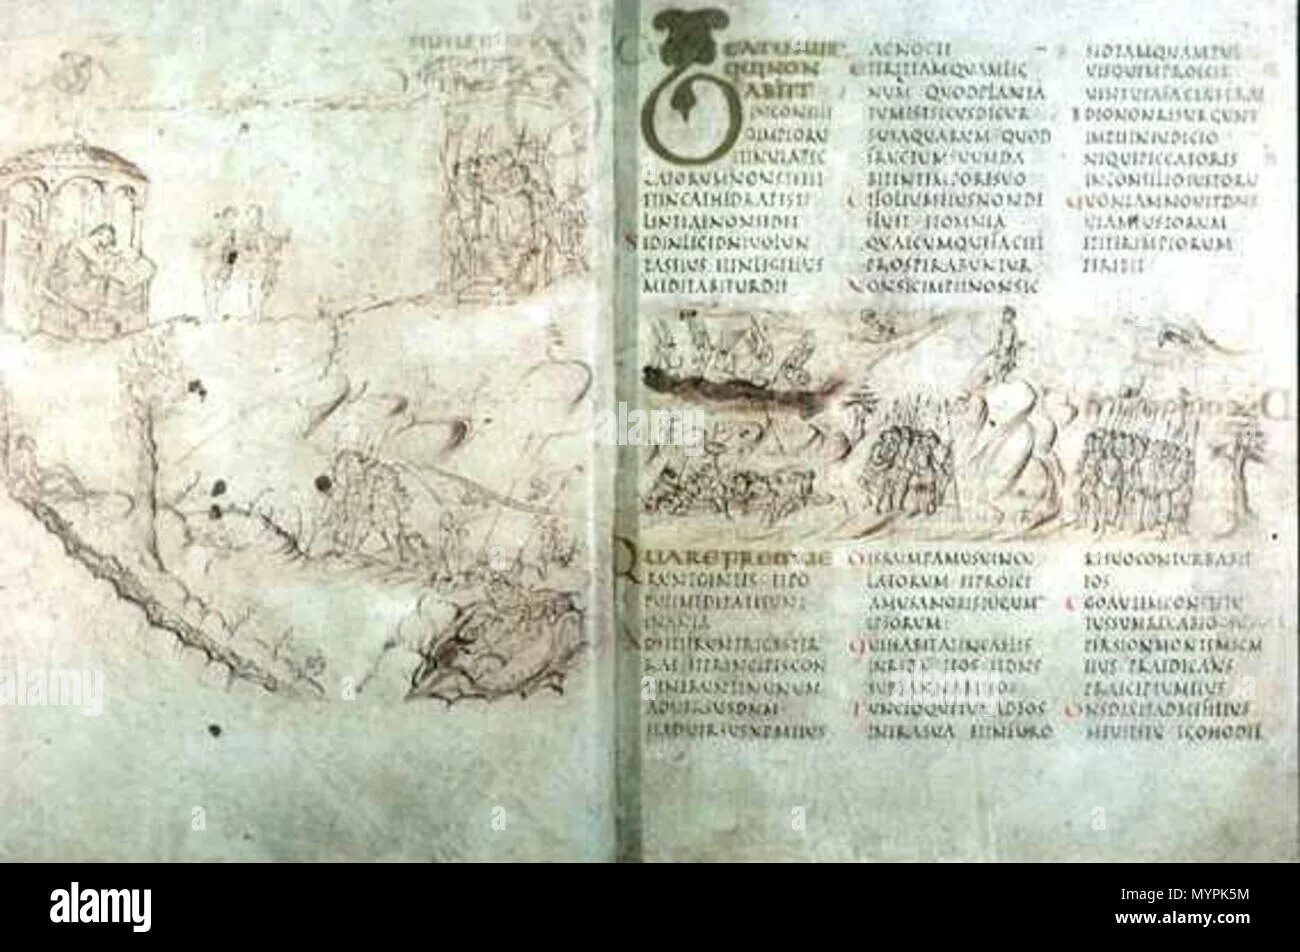 BEATUSUIR
QUINON
ABIIT
INCONSILI
OIMPIORU
ETINUIAPEC
CATORUMNONSTETIT
ETINCATHEDRAPESTI
LENTIAENONSEDIT
SEDINLEGEDNIUOLUN
TASEIUS ETINLEGEEIUS
MEDITABITURDIE
ACNOCTE
ETERITTAMQUAMLIG
NUM QUODPLANTA
TUMESTSECUSDECUR
SUSAQUARUM QUOD
FRUCTUMSUUMDA
BITINTEMPORESUO
ETFOLIUMEIUSNONDE
FLUET ETOMNIA
QUAECUMQUEFACIET
PROSPERABUNTUR
NONSICIMPIINONSIC
SEDTAMQUAMPUL
UISQUEMPROICIT
UENTUSAFACIETERRAE
IDEONONRESURGUNT
IMPIIINIUDICIO
NEQUEPECCATORES
INCONSILIOIUSTORU
QUONIAMNOUITDNS
UIAMIUSTORUM
ETITERIMPIORUM
PERIBIT
QUAREFREMUE
RUNTGENTES ETPO
PULIMEDITATISUNT
INANIA
ADSTITERUNTREGESTER
RAE ETPRINCIPESCON
UENERUNTINUNUM
ADUERSUSDNM
ETADUERSUSXPMEIUS
DISRUMPAMUSUINCU
LAEORUM ETPROICI
AMUSANOBISIUGUM
IPSORUM
QUIHABITATINCAELIS
INRIDEBITEOS ETDNS
SUBSANNABITEOS
TUNCLOQUETUR ADEOS
INIRASUA ETINFURO
RESUOCONTURBABIT
EOS
EGOAUTEMCONSTITU
TUSSUMREXABEO SUPER
SIONMONTEMSCM
EIUS PRAEDICANS
PRAECEPTUMEIUS
DNSDIXITADMEFILIUS
MEUSESTU EGOHODIE
alamy
a
Image ID: MYPK5M
www.alamy.com